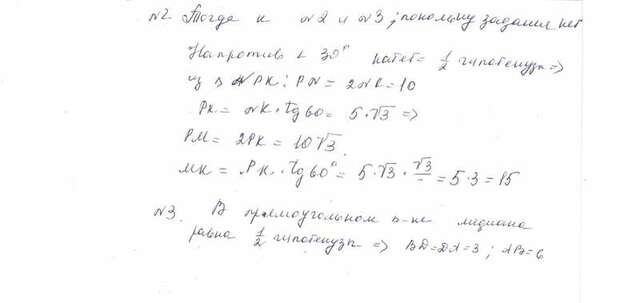 №2. Тогда к №2 и №3, поскольку задания нет
Напротив ∠ 30° катет = 1/2 гипотенузы =>
из Δ NPK: PN = 2NK = 10
PK = NK · tg60 = 5·√3 =>
PM = 2PK = 10√3.
MK = PK · tg60° = 5·√3 · √3/— = 5·3 = 15
№3. В прямоугольном Δ-ке медиана
равна 1/2 гипотенузы => BD=DA=3; AB=6